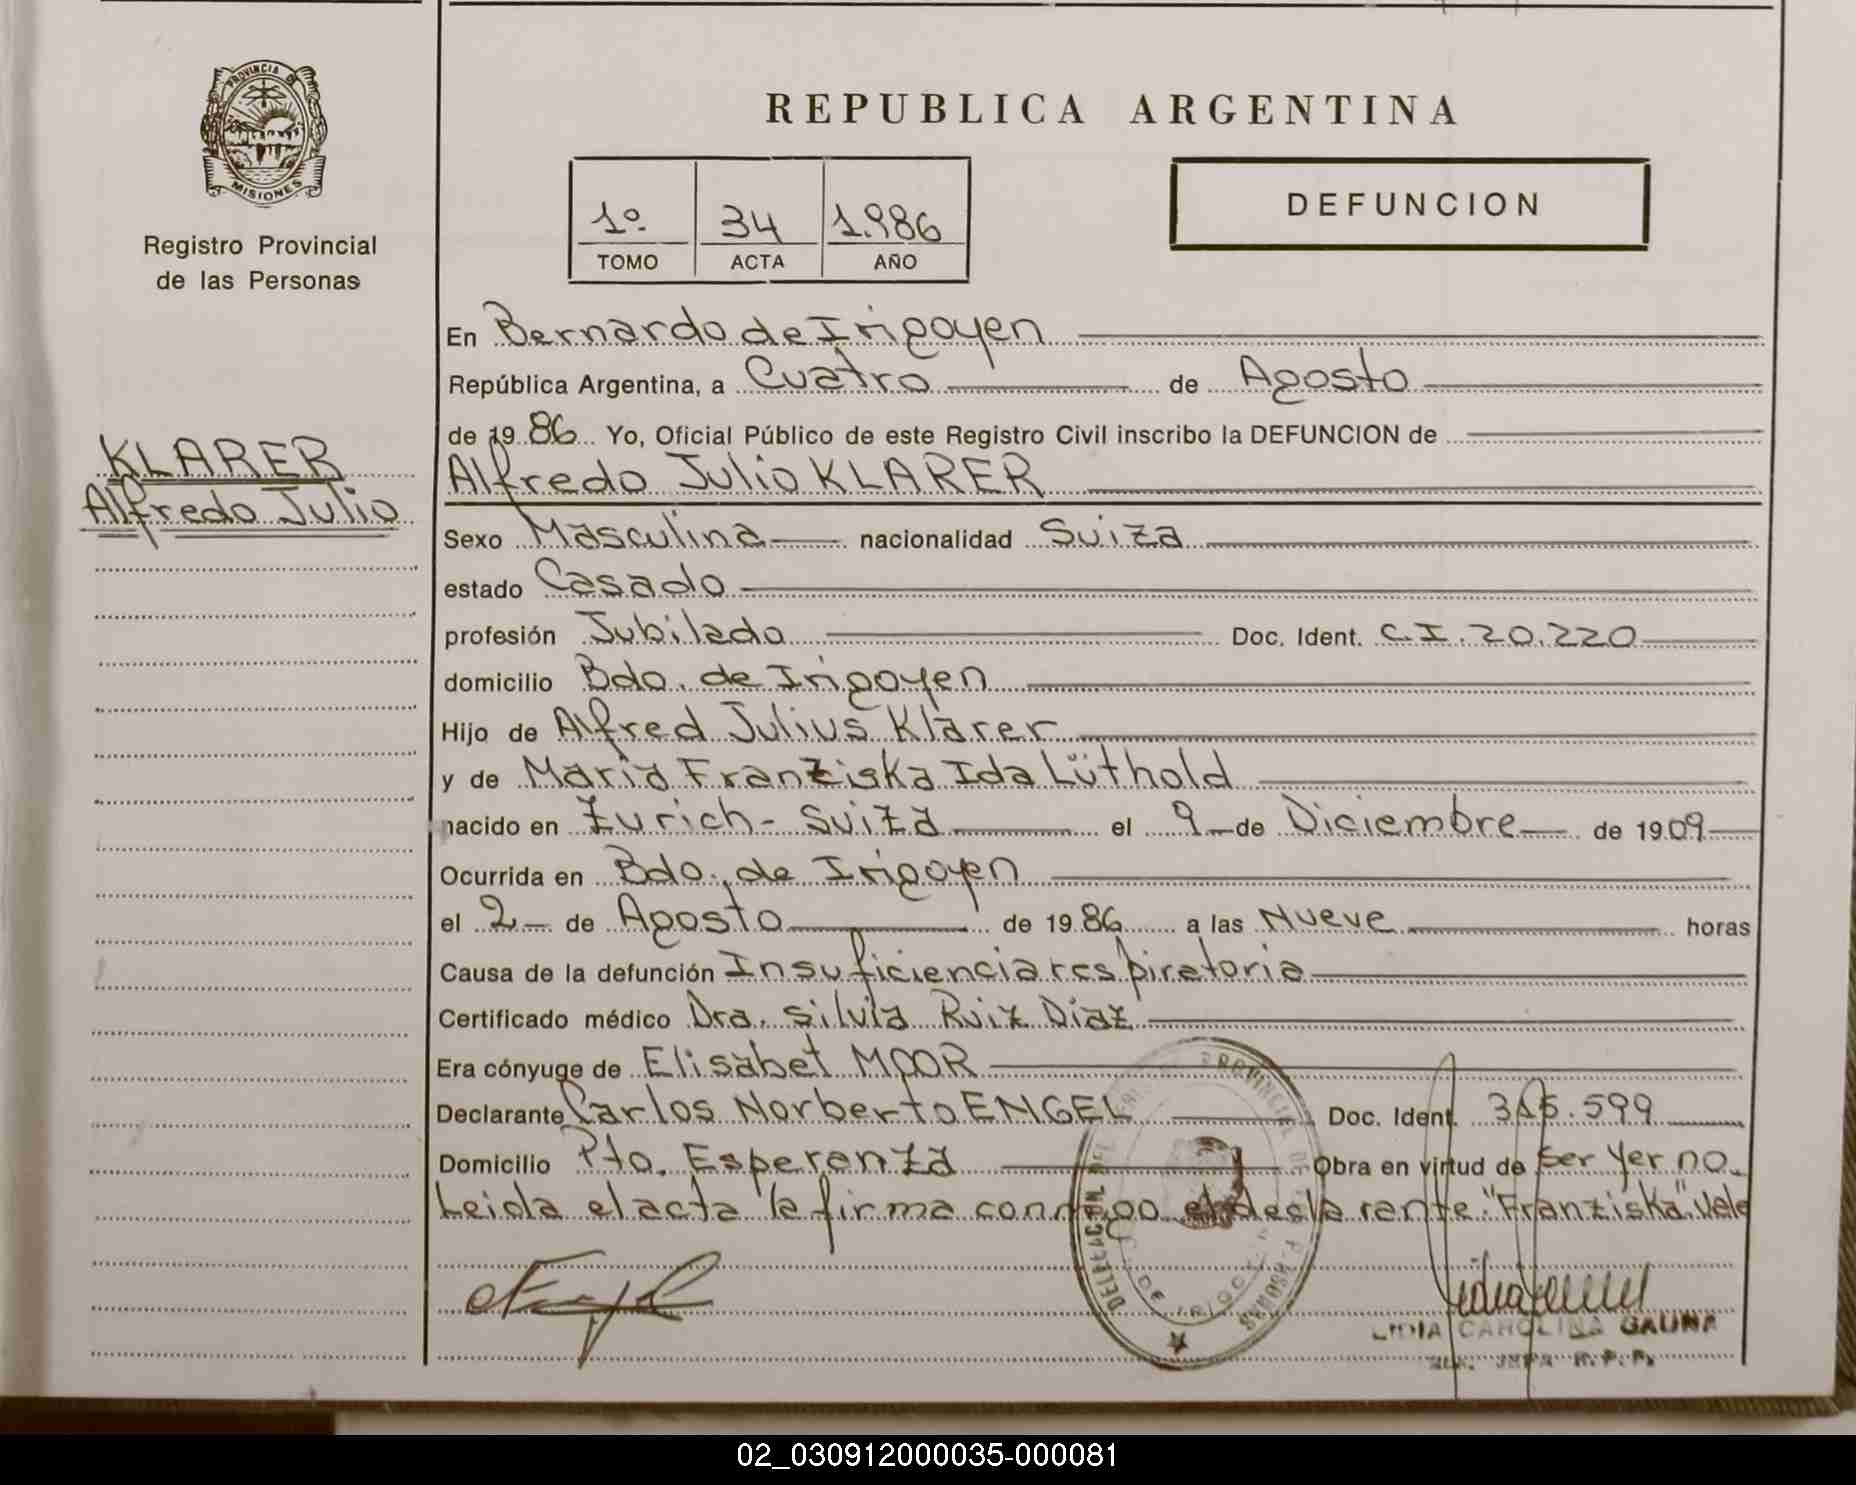 PROVINCIA DE
MISIONES
Registro Provincial
de las Personas
KLARER
Alfredo Julio
REPUBLICA ARGENTINA
1º 34 1.986
TOMO ACTA AÑO
DEFUNCION
En Bernardo de Irigoyen
República Argentina, a Cuatro de Agosto
de 19 86 Yo, Oficial Público de este Registro Civil inscribo la DEFUNCION de
Alfredo Julio KLARER
Sexo Masculina nacionalidad Suiza
estado Casado
profesión Jubilado Doc. Ident. C.I. 20.220
domicilio Bdo. de Irigoyen
Hijo de Alfred Julius Klarer
y de Maria Franziska Ida Lüthold
nacido en Zurich - Suiza el 9 de Diciembre de 1909
Ocurrida en Bdo. de Irigoyen
el 2 de Agosto de 19 86 a las Nueve horas
Causa de la defunción Insuficiencia respiratoria
Certificado médico Dra. Silvia Ruiz Diaz
Era cónyuge de Elisabet MOOR
Declarante Carlos Norberto ENGEL Doc. Ident. 599
Domicilio Pto. Esperanza Obra en virtud de ser yerno.
Leida el acta la firma conmigo el declarante. "Franziska" Vale
PROVINCIAL DE
LIDIA CAROLINA GAUNA
R.P.P.
02_030912000035-000081